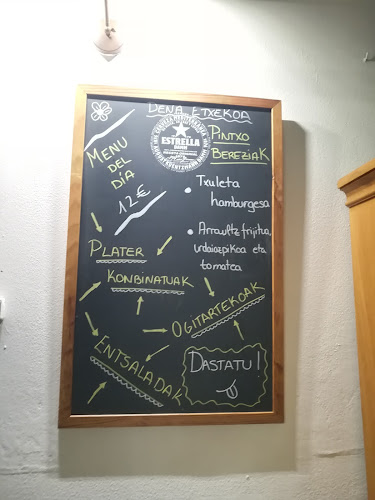 DENA ETXEKOA
ESTRELLA
DAMM
PINTXO
BEREZIAK
MENU
DEL
DÍA
12€
• Txuleta
hamburgesa
• Arraultz frijitua,
urdaiazpikoa eta
tomatea
PLATER
KONBINATUAK
OGITARTEKOAK
ENTSALADAK
DASTATU!